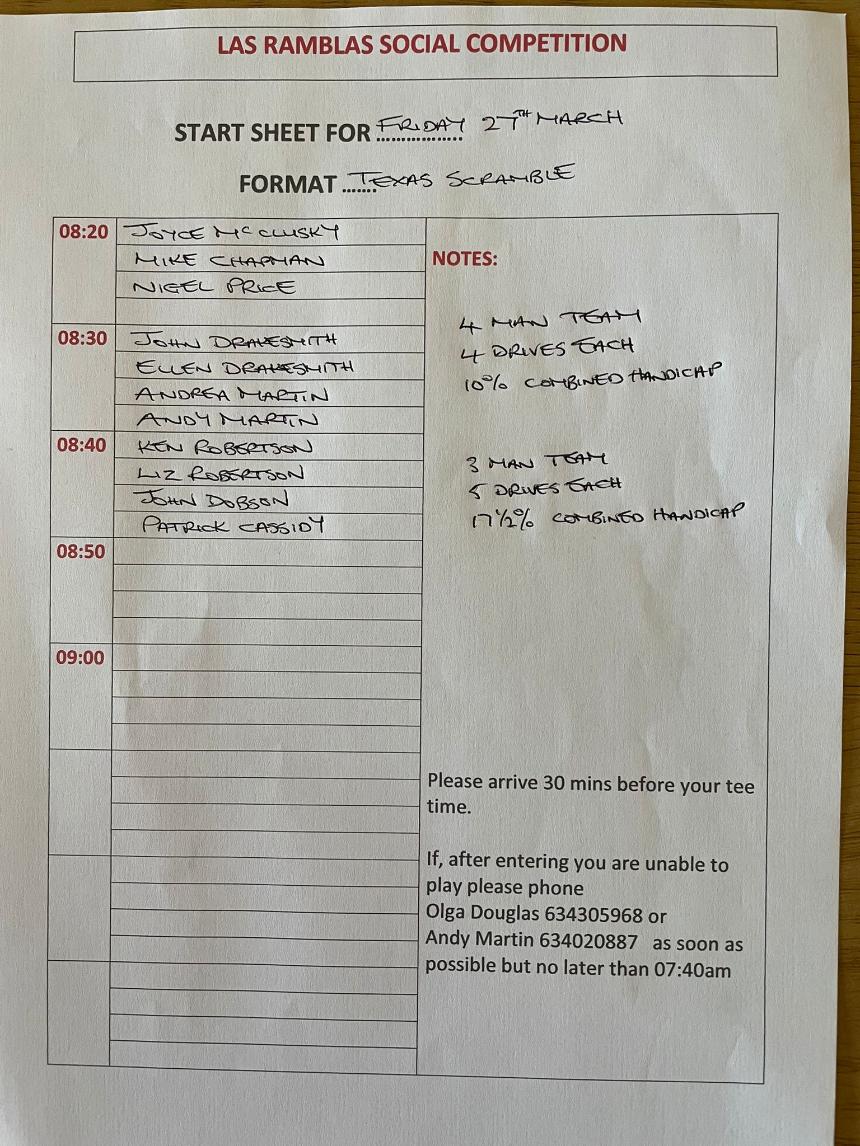 LAS RAMBLAS SOCIAL COMPETITION
START SHEET FOR FRIDAY 27TH MARCH
FORMAT TEXAS SCRAMBLE
08:20 JOYCE McCLUSKY
MIKE CHAPMAN
NIGEL PRICE
08:30 JOHN DRAKESMITH
ELLEN DRAKESMITH
ANDREA MARTIN
ANDY MARTIN
08:40 KEN ROBERTSON
LIZ ROBERTSON
JOHN DOBSON
PATRICK CASSIDY
08:50
09:00
NOTES:
4 MAN TEAM
4 DRIVES EACH
10% COMBINED HANDICAP
3 MAN TEAM
5 DRIVES EACH
17½% COMBINED HANDICAP
Please arrive 30 mins before your tee
time.
If, after entering you are unable to
play please phone
Olga Douglas 634305968 or
Andy Martin 634020887 as soon as
possible but no later than 07:40am